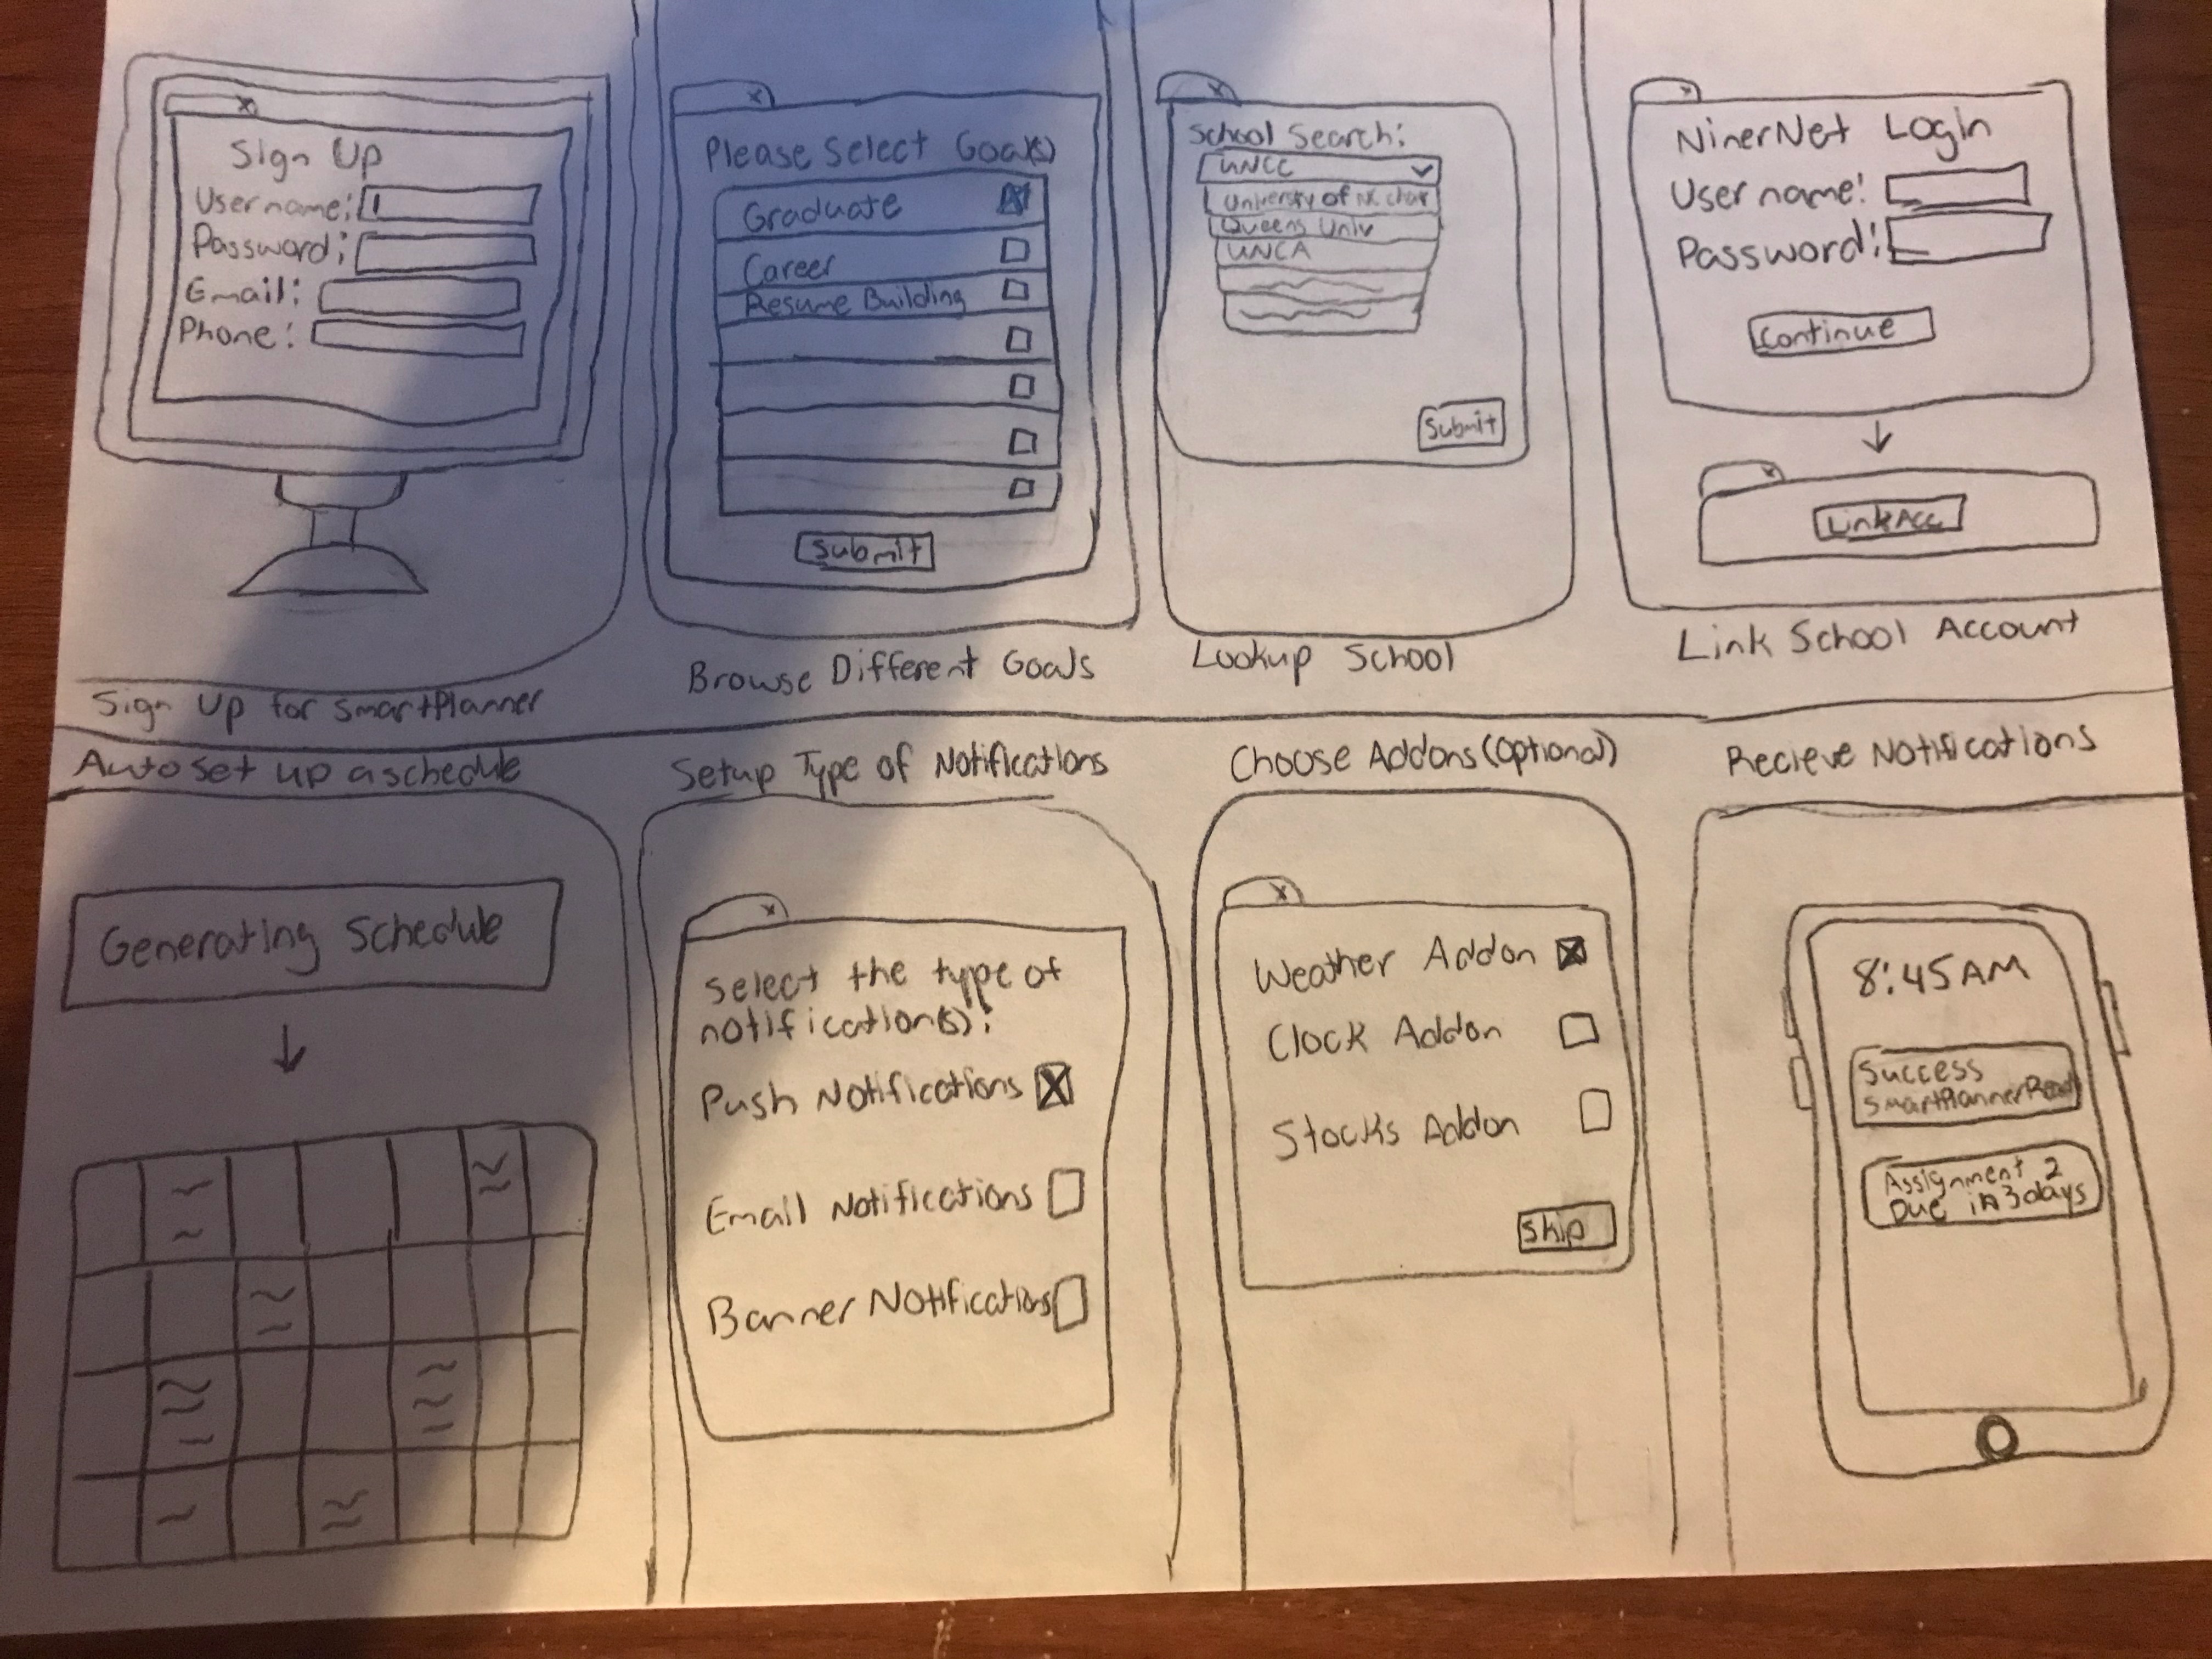 Sign Up
Username:
Password:
Email:
Phone:
Sign Up for SmartPlanner
Please Select Goal(s)
Graduate
Career
Resume Building
Submit
Browse Different Goals
School Search:
UNCC
University of NC char
Queens Univ
UNCA
Submit
Lookup School
NinerNet Login
Username:
Password:
Continue
Link Acc
Link School Account
Auto set up a schedule
Generating Schedule
Setup Type of Notifications
Select the type of
notification(s):
Push Notifications
Email Notifications
Banner Notifications
Choose Addons (Optional)
Weather Addon
Clock Addon
Stocks Addon
Skip
Recieve Notifications
8:45 AM
Success
SmartPlanner Ready
Assignment 2
Due in 3 days